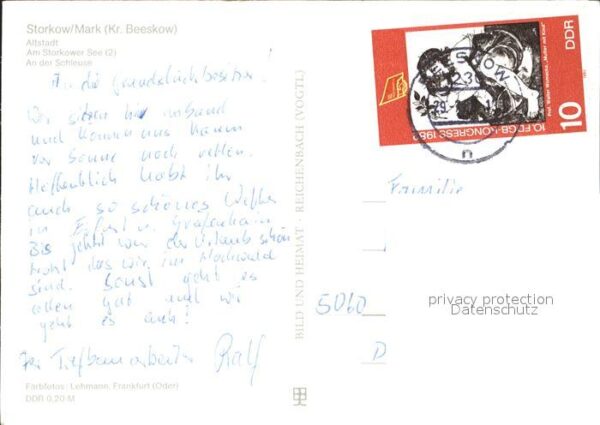 Storkow/Mark (Kr. Beeskow)
Altstadt
Am Storkower See (2)
An der Schleuse
An die Grundstücksbesitzer!
Wir sitzen hier am Sand
und können uns kaum
vor Sonne noch retten.
Hoffentlich habt ihr
auch so schönes Wetter
in Erfurt u. Gräfenhain
Bis jetzt war der Urlaub schön
trotz das wir im Hochwald
sind. Sonst geht es
allen gut und wie
geht es euch!
Tiefbauarbeiter Ralf
Farbfotos: Lehmann, Frankfurt (Oder)
DDR 0,20 M
BILD UND HEIMAT · REICHENBACH (VOGTL)
Prof. Walter Womacka, „Mutter mit Kind"
DDR
10
10. FDGB-KONGRESS 1982
BEESKOW
Familie
5060
D
privacy protection
Datenschutz